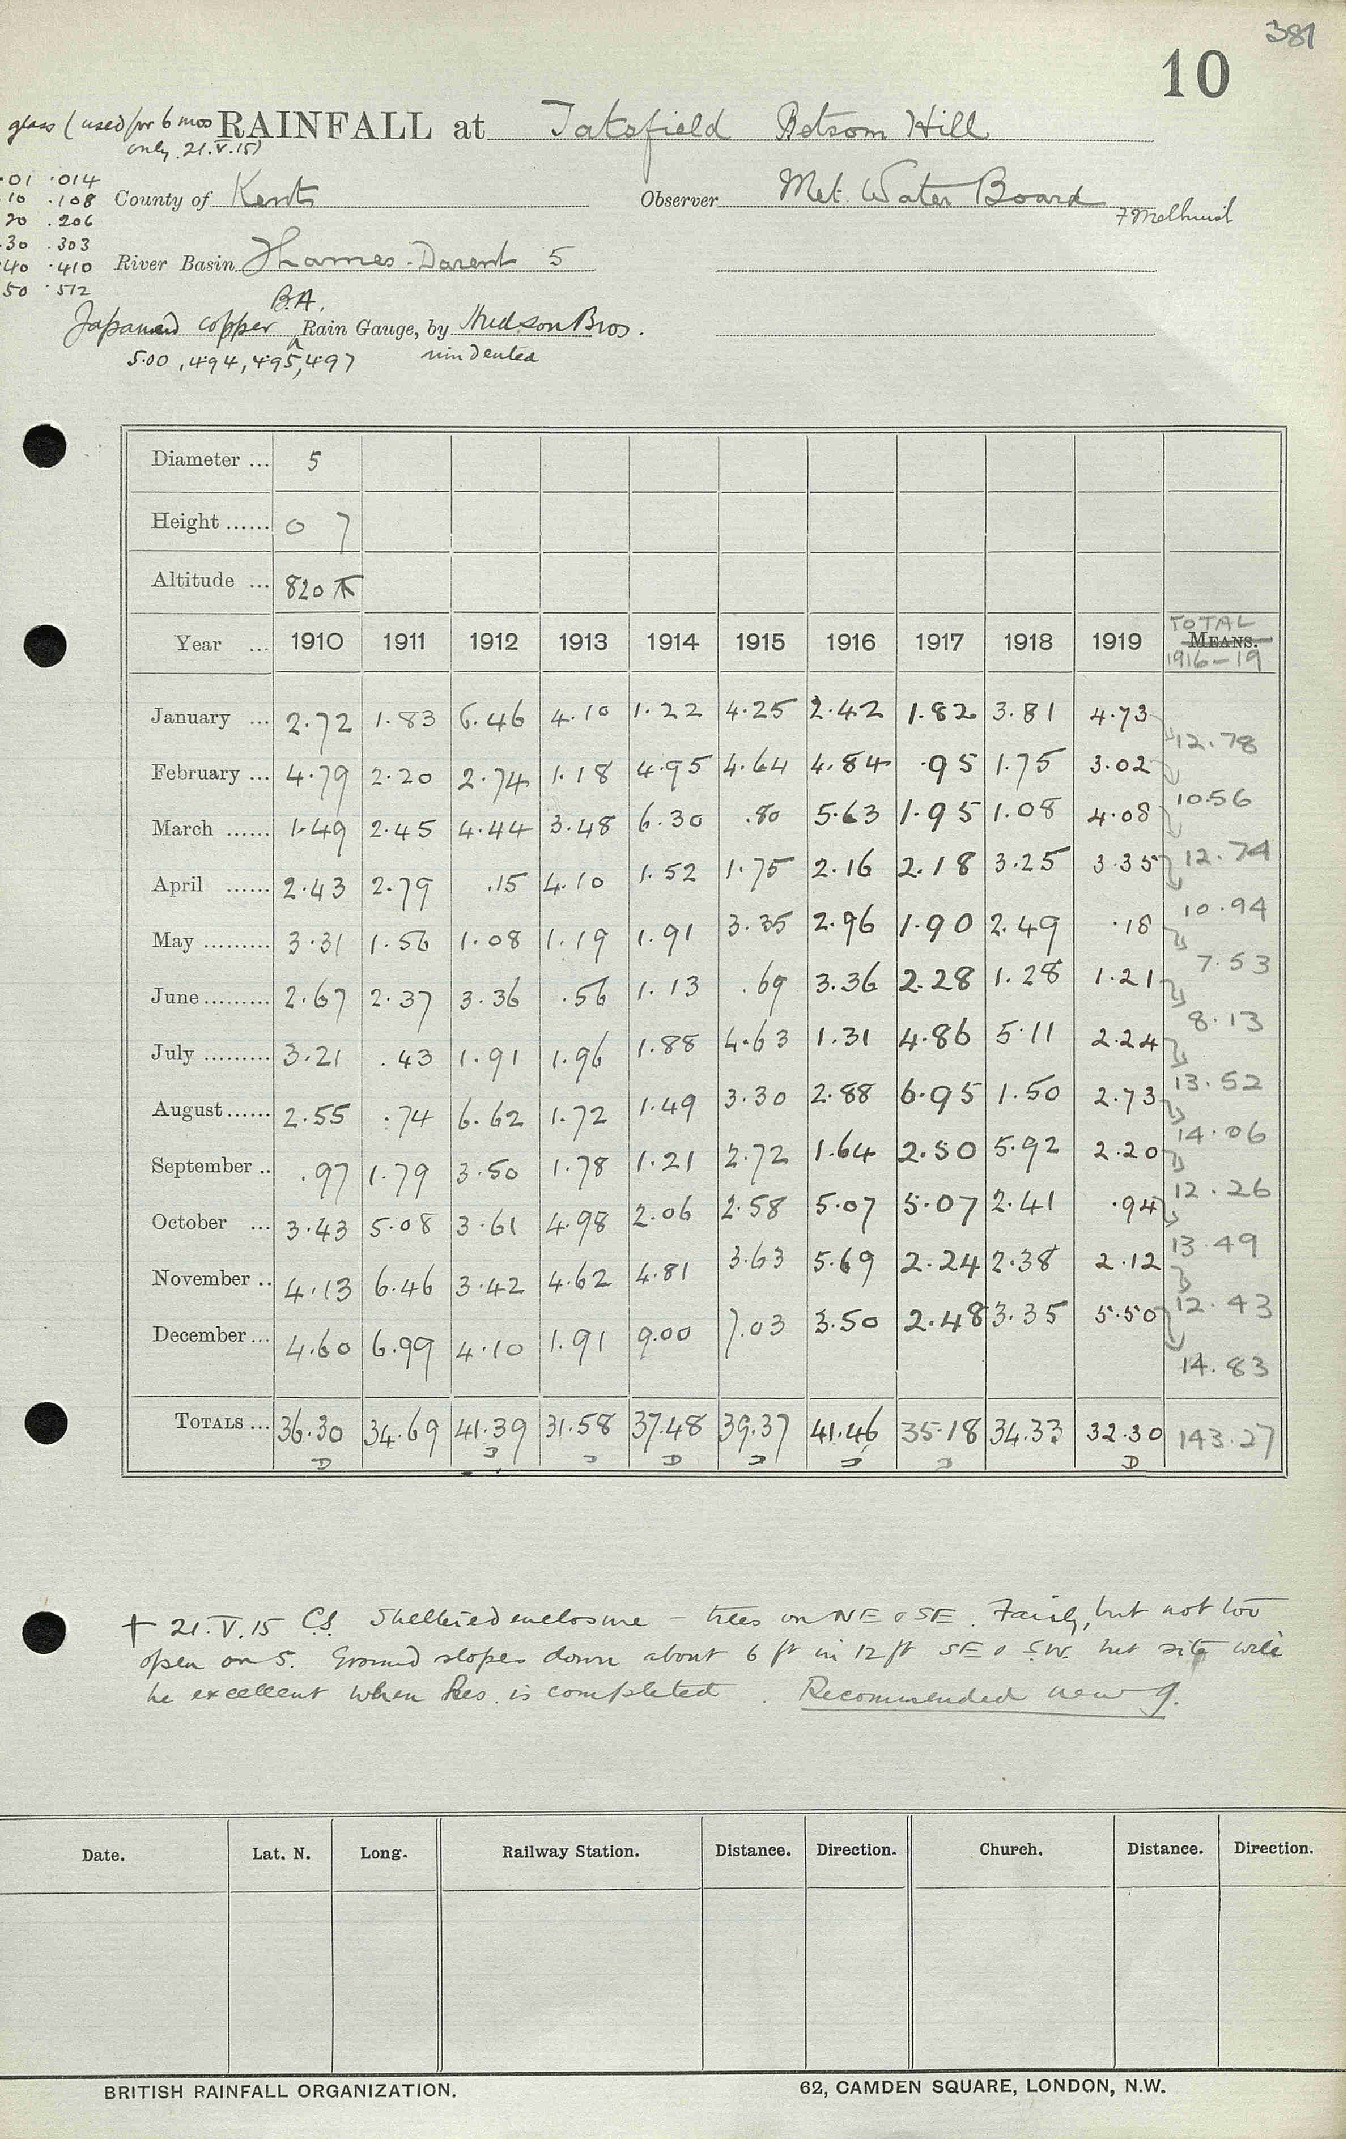 381
10
glass (used for 6 mos RAINFALL at Tatsfield Betsom Hill
only 21.V.15)
.01 .014
10 .108 County of Kent Observer Met. Water Board
20 .206
30 .303
40 .410 River Basin Thames-Darent 5
50 .512
B.A.
Japanned copper Rain Gauge, by Hudson Bros.
5.00, .494, .495, .497 undented
Diameter ... 5
Height ...... 0 7
Altitude ... 820
Year ... 1910 1911 1912 1913 1914 1915 1916 1917 1918 1919 TOTAL MEANS. 1916-19
January ... 2.72 1.83 6.46 4.10 1.22 4.25 2.42 1.82 3.81 4.73 12.78
February ... 4.79 2.20 2.74 1.18 4.95 4.64 4.84 .95 1.75 3.02 10.56
March ...... 1.49 2.45 4.44 3.48 6.30 .80 5.63 1.95 1.08 4.08 12.74
April ...... 2.43 2.79 .15 4.10 1.52 1.75 2.16 2.18 3.25 3.35 10.94
May ......... 3.31 1.56 1.08 1.19 1.91 3.35 2.96 1.90 2.49 .18 7.53
June ......... 2.67 2.37 3.36 .56 1.13 .69 3.36 2.28 1.28 1.21 8.13
July ......... 3.21 .43 1.91 1.96 1.88 4.63 1.31 4.86 5.11 2.24 13.52
August ...... 2.55 .74 6.62 1.72 1.49 3.30 2.88 6.95 1.50 2.73 14.06
September .. .97 1.79 3.50 1.78 1.21 2.72 1.64 2.50 5.92 2.20 12.26
October ... 3.43 5.08 3.61 4.98 2.06 2.58 5.07 5.07 2.41 .94 13.49
November .. 4.13 6.46 3.42 4.62 4.81 3.63 5.69 2.24 2.38 2.12 12.43
December ... 4.60 6.99 4.10 1.91 9.00 7.03 3.50 2.48 3.35 5.50 14.83
TOTALS ... 36.30 34.69 41.39 31.58 37.48 39.37 41.46 35.18 34.33 32.30 143.27
† 21.V.15 C.S. Sheltered enclosure – trees on NE & SE. Fairly, but not too
open on S. Ground slopes down about 6 ft in 12 ft SE & SW. but site will
be excellent when Res. is completed. Recommended new g.
Date. Lat. N. Long. Railway Station. Distance. Direction. Church. Distance. Direction.
BRITISH RAINFALL ORGANIZATION. 62, CAMDEN SQUARE, LONDON, N.W.